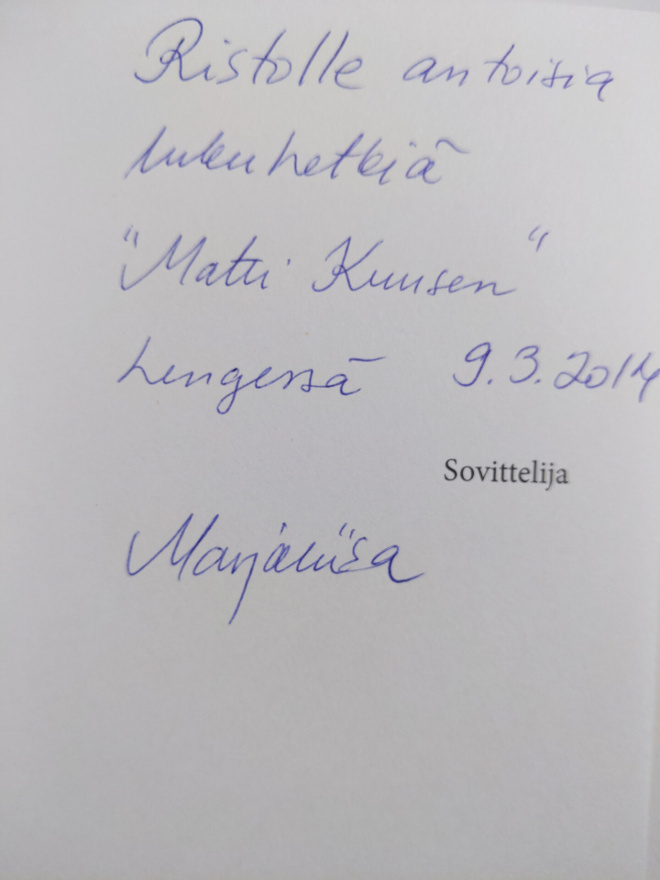 Ristolle antoisia
lukuhetkiä
"Matti Kuusen"
hengessä 9.3.2014
Sovittelija
Marjaliisa